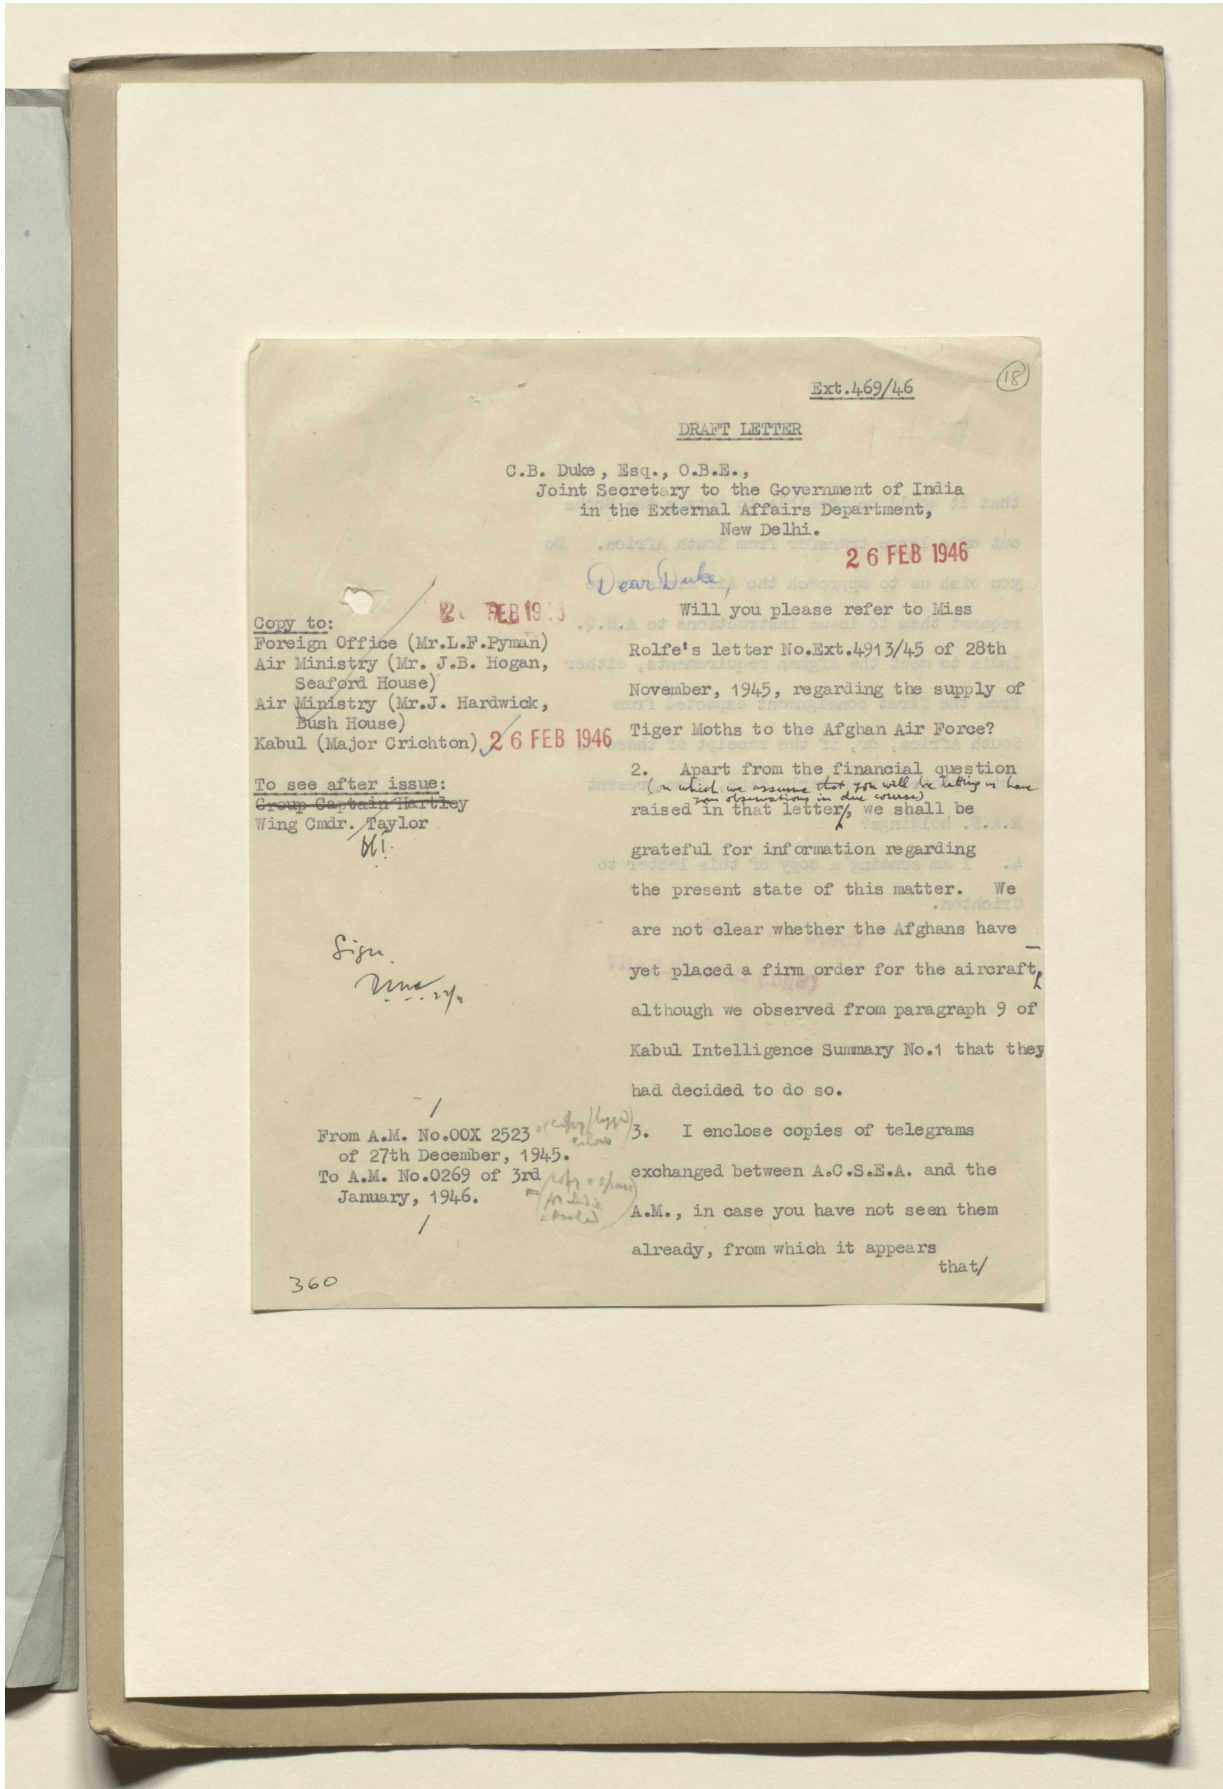 18
Ext.469/46
DRAFT LETTER
C.B. Duke, Esq., O.B.E.,
Joint Secretary to the Government of India
in the External Affairs Department,
New Delhi.
26 FEB 1946
Dear Duke,
Copy to:
Foreign Office (Mr.L.F.Pyman)
Air Ministry (Mr. J.B. Hogan,
Seaford House)
Air Ministry (Mr.J. Hardwick,
Bush House)
Kabul (Major Crichton)
26 FEB 1946
To see after issue:
Group Captain Hartley
Wing Cmdr. Taylor
Sign.
Will you please refer to Miss
Rolfe's letter No.Ext.4913/45 of 28th
November, 1945, regarding the supply of
Tiger Moths to the Afghan Air Force?
2. Apart from the financial question
(on which we assume that you will be letting us have
your observations in due course)
raised in that letter, we shall be
grateful for information regarding
the present state of this matter. We
are not clear whether the Afghans have
yet placed a firm order for the aircraft,
although we observed from paragraph 9 of
Kabul Intelligence Summary No.1 that they
had decided to do so.
From A.M. No.OOX 2523
of 27th December, 1945.
To A.M. No.0269 of 3rd
January, 1946.
3. I enclose copies of telegrams
exchanged between A.C.S.E.A. and the
A.M., in case you have not seen them
already, from which it appears
that/
360